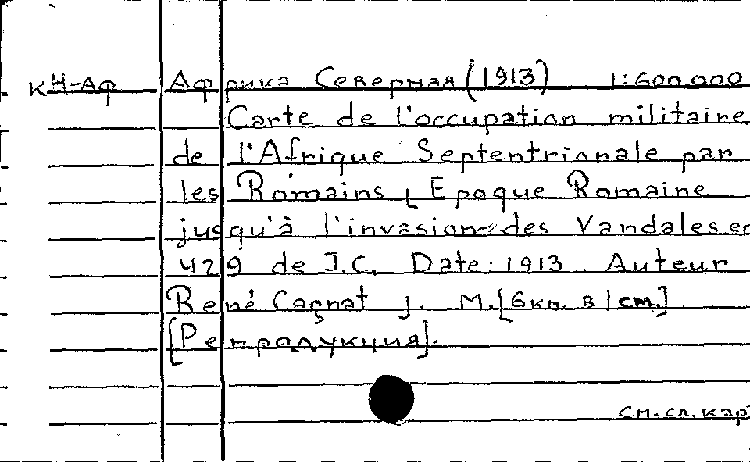 КН-АФ Африка Северная (1913) 1:600.000
Carte de l'occupation militaire
de l'Afrique Septentrionale par
les Romains, Epoque Romaine
jusqu'à l'invasion des Vandales en
429 de J.C. Date: 1913 Auteur
René Cagnat J. М.[6км. в 1 см.]
[Репродукция].
См. сл. кар